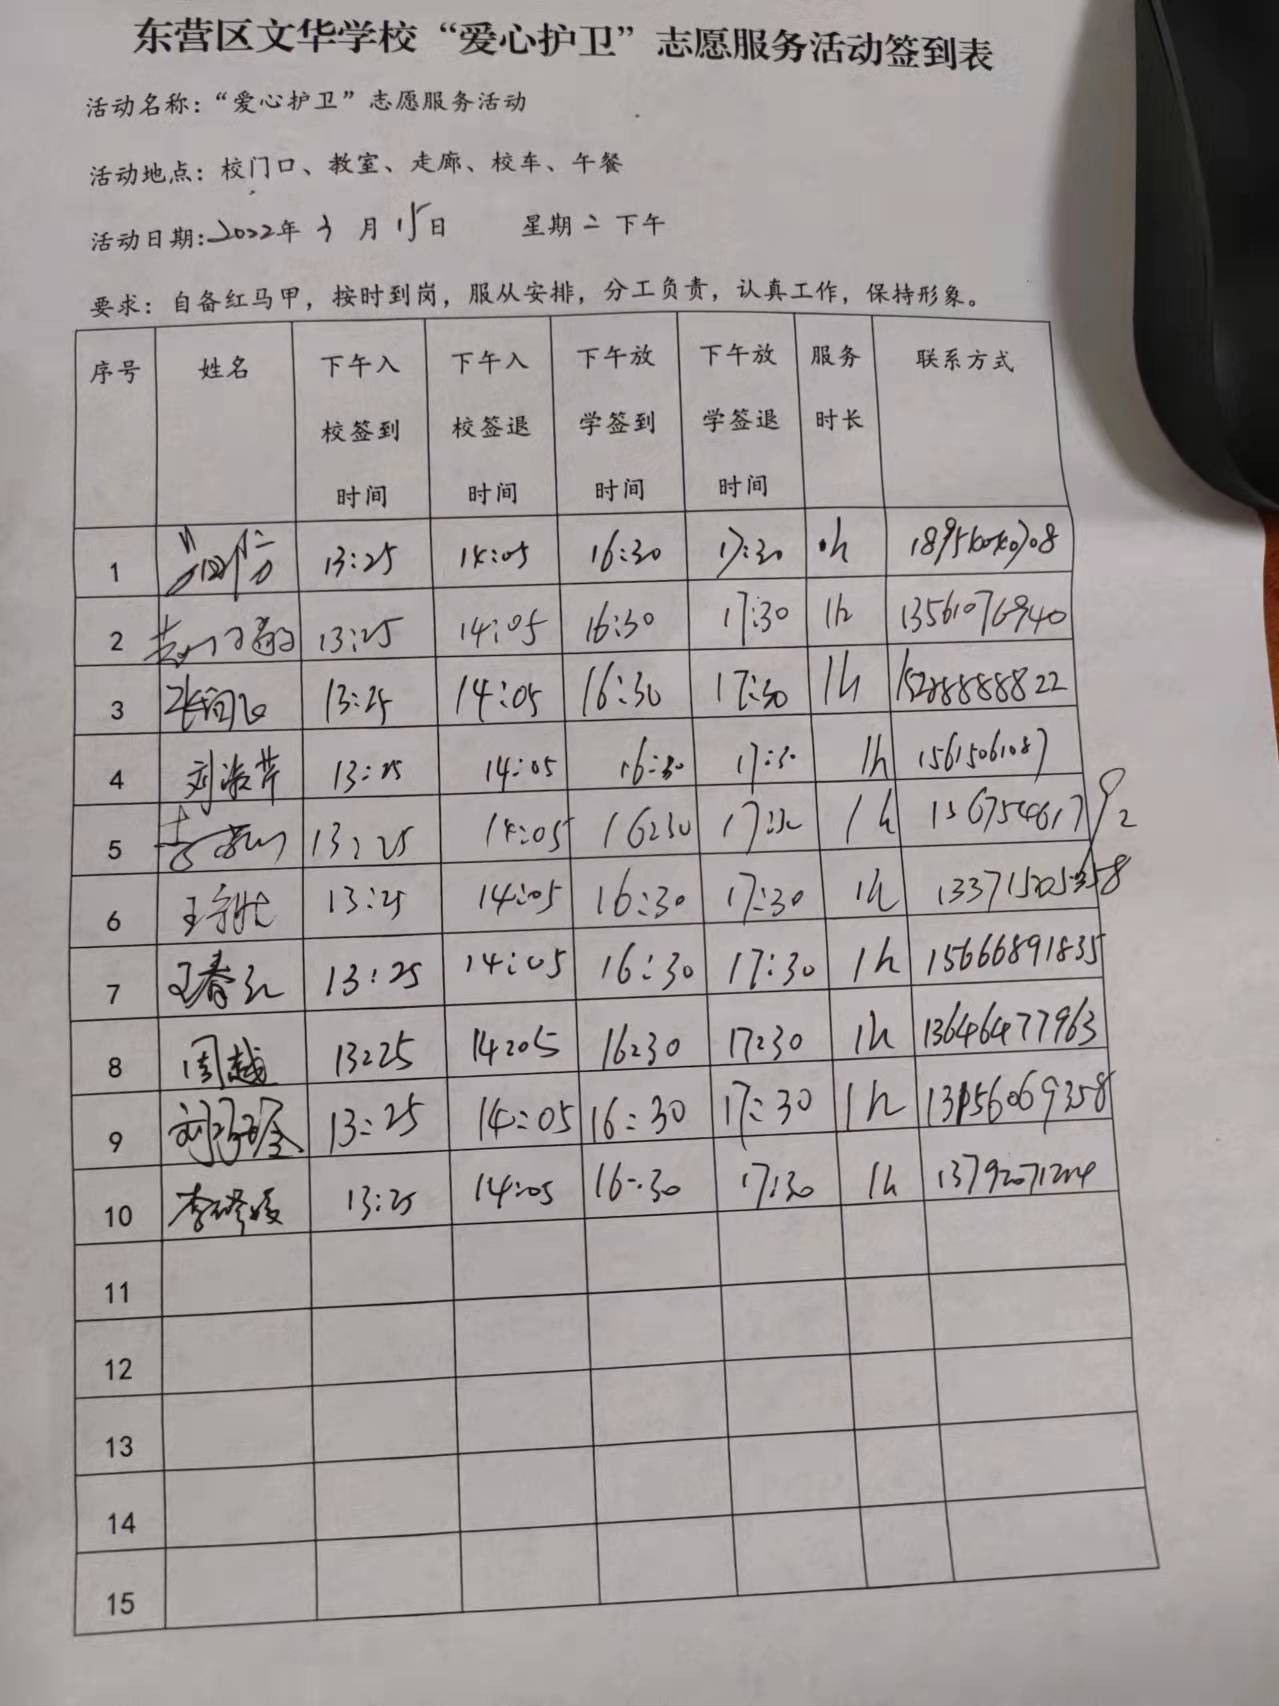 东营区文华学校“爱心护卫”志愿服务活动签到表
活动名称：“爱心护卫”志愿服务活动
活动地点：校门口、教室、走廊、校车、午餐
活动日期：2022年3月15日 星期二下午
要求：自备红马甲，按时到岗，服从安排，分工负责，认真工作，保持形象。
序号 姓名 下午入校签到时间 下午入校签退时间 下午放学签到时间 下午放学签退时间 服务时长 联系方式
1 13:25 14:05 16:30 17:30 h
2 13:25 14:05 16:30 17:30 1h 13561076940
3 13:25 14:05 16:30 17:30 1h 15288888822
4 刘淑芹 13:25 14:05 16:30 17:30 1h 15615061087
5 13:25 14:05 16:30 17:30 1h 13675461792
6 13:25 14:05 16:30 17:30 1h
7 王春红 13:25 14:05 16:30 17:30 1h 15666891835
8 周越 13:25 14:05 16:30 17:30 1h 13646477963
9 13:25 14:05 16:30 17:30 1h
10 13:25 14:05 16:30 17:30 1h
11
12
13
14
15